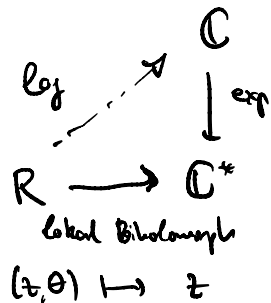 ℂ
log
exp
R ⟶ ℂ*
lokal Biholomorph
(z,θ) ⟼ z